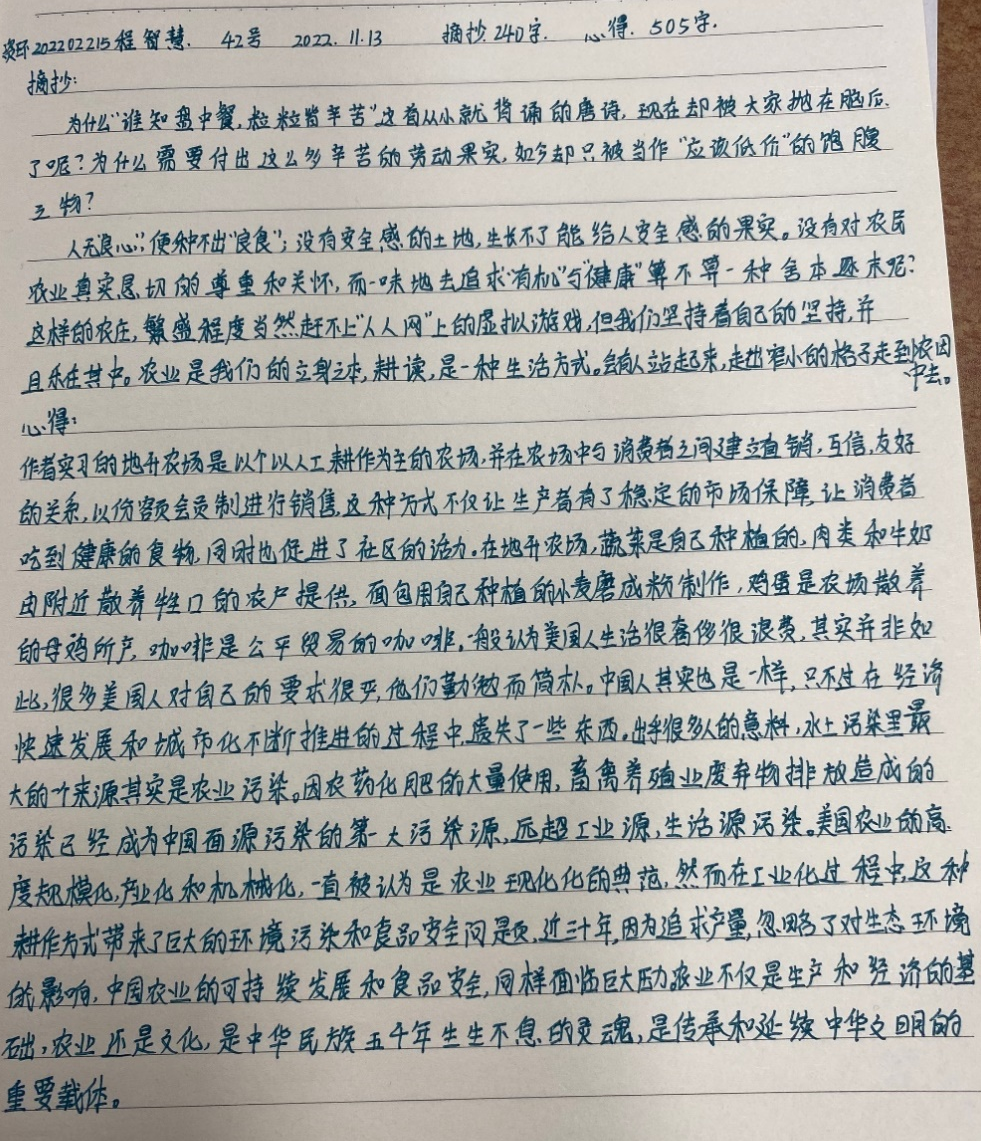 资环202202215程智慧. 42号 2022.11.13 摘抄240字. 心得.505字.
摘抄:
为什么"谁知盘中餐,粒粒皆辛苦"这首从小就背诵的唐诗,现在却被大家抛在脑后.
了呢?为什么需要付出这么多辛苦的劳动果实,如今却只被当作"应该低价"的饱腹
之物?
人无"良心",便种不出"良食";没有安全感的土地,生长不了能给人安全感的果实。没有对农民
农业真实恳切的尊重和关怀,而一味地去追求"有机"与"健康"算不算一种舍本逐末呢?
这样的农庄,繁盛程度当然赶不上"人人网"上的虚拟游戏,但我们坚持着自己的坚持,并
且乐在其中。农业是我们的立身之本,耕读,是一种生活方式。会有人站起来,走出窄小的格子走到农田
中去。
心得:
作者实习的地升农场是以个以人工耕作为主的农场,并在农场中与消费者之间建立直销,互信,友好
的关系,以份额会员制进行销售,这种方式不仅让生产者有了稳定的市场保障,让消费者
吃到健康的食物,同时也促进了社区的活力.在地升农场,蔬菜是自己种植的,肉类和牛奶
由附近散养牲口的农户提供,面包用自己种植的小麦磨成粉制作,鸡蛋是农场散养
的母鸡所产,咖啡是公平贸易的咖啡.一般认为美国人生活很奢侈很浪费,其实并非如
此,很多美国人对自己的要求很严,他们勤勉而简朴。中国人其实也是一样,只不过在经济
快速发展和城市化不断推进的过程中,遗失了一些东西.出乎很多人的意料,水土污染里最
大的个来源其实是农业污染。因农药化肥的大量使用,畜禽养殖业废弃物排放造成的
污染已经成为中国面源污染的第一大污染源,远超工业源,生活源污染。美国农业的高
度规模化,产业化和机械化,一直被认为是农业现化化的典范,然而在工业化过程中,这种
耕作方式带来了巨大的环境污染和食品安全问题,近三十年,因为追求产量,忽略了对生态环境
的影响,中国农业的可持续发展和食品安全,同样面临巨大压力.农业不仅是生产和经济的基
础,农业还是文化,是中华民族五千年生生不息的灵魂,是传承和延续中华文明的
重要载体。